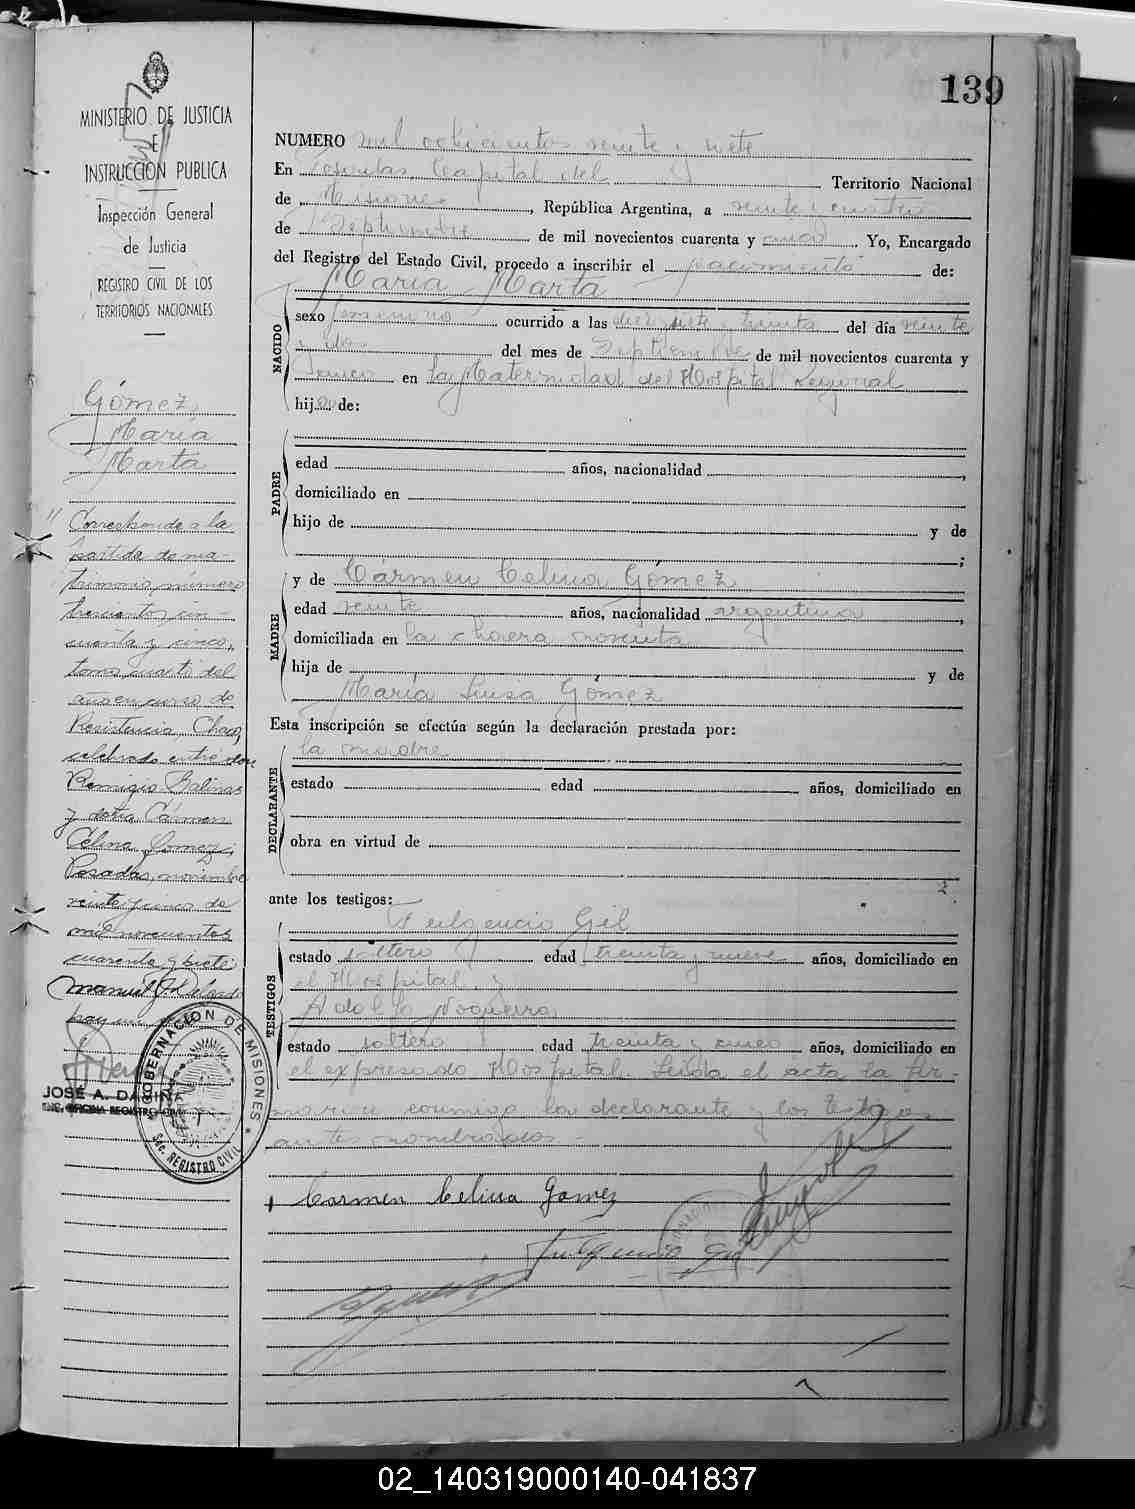 139
MINISTERIO DE JUSTICIA
E
INSTRUCCION PUBLICA
Inspección General
de Justicia
REGISTRO CIVIL DE LOS
TERRITORIOS NACIONALES
Gómez
María
Marta
Corresponde a la
partida de ma-
trimonio, número
trescientos cin-
cuenta y cinco,
tomo cuarto del
año en curso de
Resistencia, Chaco,
celebrado entre don
Remigio Salinas
y doña Cármen
Celina Gomez;
Posadas, noviembre
veinte y cinco de
mil novecientos
cuarenta y siete;
JOSÉ A. DACINA
ENC. OFICINA REGISTRO CIVIL
GOBERNACION DE MISIONES
Sec. REGISTRO CIVIL
NUMERO mil ochocientos veinte y siete
En Posadas Capital del Territorio Nacional
de Misiones, República Argentina, a veinte y cuatro
de Septiembre de mil novecientos cuarenta y cinco. Yo, Encargado
del Registro del Estado Civil, procedo a inscribir el nacimiento de:
María Marta
NACIDO
sexo femenino ocurrido a las diez y siete y treinta del día veinte
y dos del mes de Septiembre de mil novecientos cuarenta y
cinco en la Maternidad del Hospital Regional
hija de:
PADRE
edad años, nacionalidad ,
domiciliado en
hijo de y de
;
MADRE
y de Cármen Celina Gómez
edad veinte años, nacionalidad argentina,
domiciliada en la chacra noventa
hija de y de
María Luisa Gómez
Esta inscripción se efectúa según la declaración prestada por:
DECLARANTE
la madre
estado edad años, domiciliado en
obra en virtud de
ante los testigos:
TESTIGOS
Fulgencio Gil
estado soltero edad treinta y nueve años, domiciliado en
el Hospital, y
Adolfo Nogueira
estado soltero edad treinta y cinco años, domiciliado en
el expresado Hospital. Leída el acta la fir-
maron conmigo la declarante y los testigos
antes nombrados.-
Carmen Celina Gomez
Fulgencio Gil
02_140319000140-041837